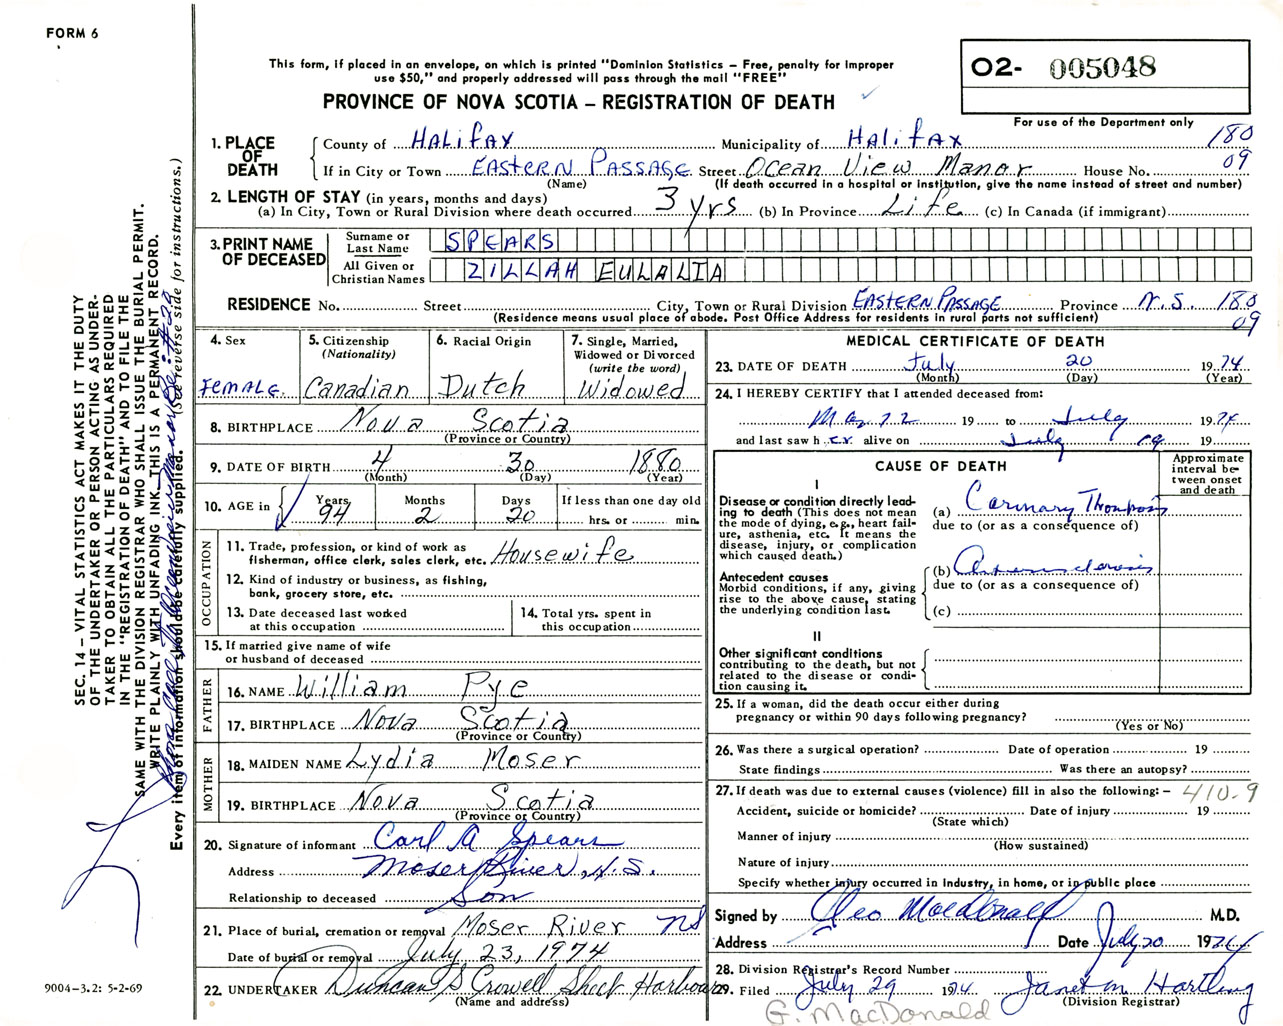 FORM 6
This form, if placed in an envelope, on which is printed "Dominion Statistics – Free, penalty for improper
use $50," and properly addressed will pass through the mail "FREE"
PROVINCE OF NOVA SCOTIA – REGISTRATION OF DEATH
02- 005048
For use of the Department only
180
09
1. PLACE OF DEATH
County of HALIFAX Municipality of HALIFAX
If in City or Town EASTERN PASSAGE Street Ocean View Manor House No.
(Name) (If death occurred in a hospital or institution, give the name instead of street and number)
2. LENGTH OF STAY (in years, months and days)
(a) In City, Town or Rural Division where death occurred 3 yrs (b) In Province Life (c) In Canada (if immigrant)
3. PRINT NAME OF DECEASED
Surname or Last Name SPEARS
All Given or Christian Names ZILLAH EULALIA
RESIDENCE No. Street City, Town or Rural Division EASTERN PASSAGE Province N.S. 180
(Residence means usual place of abode. Post Office Address for residents in rural parts not sufficient) 09
4. Sex FEMALE
5. Citizenship (Nationality) Canadian
6. Racial Origin Dutch
7. Single, Married, Widowed or Divorced (write the word) Widowed
8. BIRTHPLACE Nova Scotia
(Province or Country)
9. DATE OF BIRTH 4 30 1880
(Month) (Day) (Year)
10. AGE in Years 94 Months 2 Days 20 If less than one day old hrs. or min.
OCCUPATION
11. Trade, profession, or kind of work as fisherman, office clerk, sales clerk, etc. Housewife
12. Kind of industry or business, as fishing, bank, grocery store, etc.
13. Date deceased last worked at this occupation
14. Total yrs. spent in this occupation
15. If married give name of wife or husband of deceased
FATHER
16. NAME William Pye
17. BIRTHPLACE Nova Scotia
(Province or Country)
MOTHER
18. MAIDEN NAME Lydia Moser
19. BIRTHPLACE Nova Scotia
(Province or Country)
20. Signature of informant Carl A Spears
Address Moser River, N.S.
Relationship to deceased Son
21. Place of burial, cremation or removal Moser River NS
Date of burial or removal July 23, 1974
22. UNDERTAKER Duncan S Crowell Sheet Harbour
(Name and address)
MEDICAL CERTIFICATE OF DEATH
23. DATE OF DEATH July 20 1974
(Month) (Day) (Year)
24. I HEREBY CERTIFY that I attended deceased from:
May 72 19 to July 1974
and last saw her alive on July 19 19
CAUSE OF DEATH
Approximate interval between onset and death
I
Disease or condition directly leading to death (This does not mean the mode of dying, e.g., heart failure, asthenia, etc. It means the disease, injury, or complication which caused death.)
(a)
due to (or as a consequence of)
Antecedent causes
Morbid conditions, if any, giving rise to the above cause, stating the underlying condition last.
(b)
due to (or as a consequence of)
(c)
II
Other significant conditions
contributing to the death, but not related to the disease or condition causing it.
25. If a woman, did the death occur either during pregnancy or within 90 days following pregnancy?
(Yes or No)
26. Was there a surgical operation? Date of operation 19
State findings Was there an autopsy?
27. If death was due to external causes (violence) fill in also the following: – 410.9
Accident, suicide or homicide? Date of injury 19
(State which)
Manner of injury
(How sustained)
Nature of injury
Specify whether injury occurred in industry, in home, or in public place
Signed by Geo MacDonald M.D.
Address Date July 20 1974
28. Division Registrar's Record Number
29. Filed July 29 1974 Janet M Hartling
(Division Registrar)
G. MacDonald
SEC. 14 – VITAL STATISTICS ACT MAKES IT THE DUTY
OF THE UNDERTAKER OR PERSON ACTING AS UNDER-
TAKER TO OBTAIN ALL THE PARTICULARS REQUIRED
IN THE "REGISTRATION OF DEATH" AND TO FILE THE
SAME WITH THE DIVISION REGISTRAR WHO SHALL ISSUE THE BURIAL PERMIT.
WRITE PLAINLY WITH UNFADING INK. THIS IS A PERMANENT RECORD.
Every item of information should be carefully supplied. (See reverse side for instructions.)
9004-3.2: 5-2-69